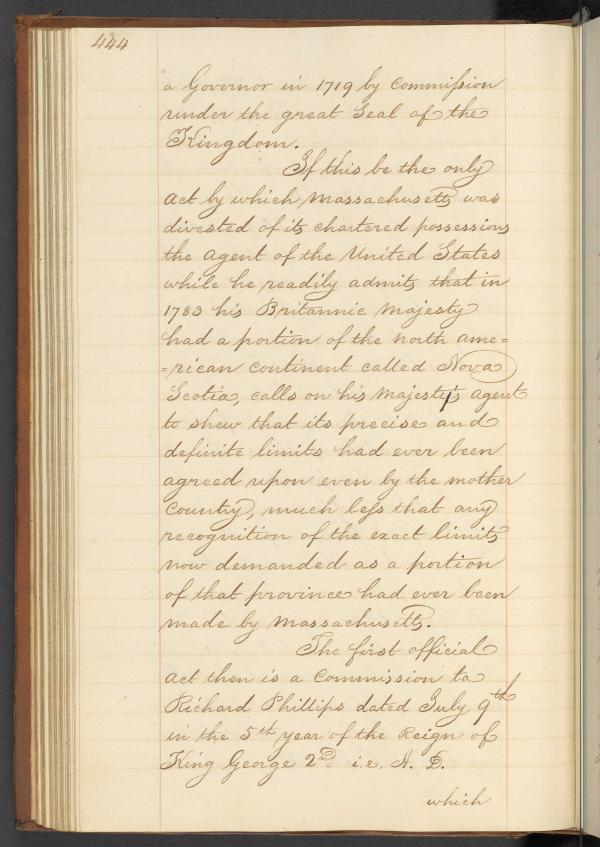 444
a Governor in 1719 by Commission
under the great Seal of the
Kingdom.
If this be the only
act by which Massachusetts was
divested of its chartered possessions
the agent of the United States
while he readily admits that in
1783 his Britannic Majesty
had a portion of the north ame=
=rican Continent called Nova
Scotia, calls on his Majesty's agent
to shew that its precise and
definite limits had ever been
agreed upon even by the mother
Country, much less that any
recognition of the exact limits
now demanded as a portion
of that province had ever been
made by Massachusetts.
The first official
act then is a Commission to
Richard Phillips dated July 9th
in the 5th year of the Reign of
King George 2nd i.e. A. D.
which